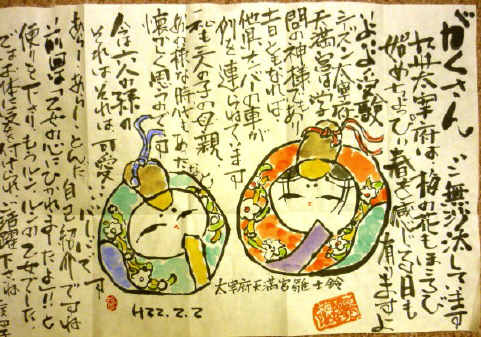 がくさん ご無沙汰しています
太宰府は梅の花もほころび
始めちょっぴり春を感じる日も
有りますよ
いよいよ受験
シーズン太宰府
天満宮は学
問の神様でもあり
土日ともなれば
他県ナンバーの車が
列を連らねています
私も二人の子の母親
あの様な時代もあった
懐かしく思うのです
人は六人様の
それはそれは可愛い
あらーあらーとんだ自己紹介ですね
前回は「乙女の心にひかれますだよ!!」と
便りを下さり、もうルンルンの乙女でした。
では、お体に気を付けられ、ご活躍下さいね
太宰府天満宮雛土鈴
H22.2.2